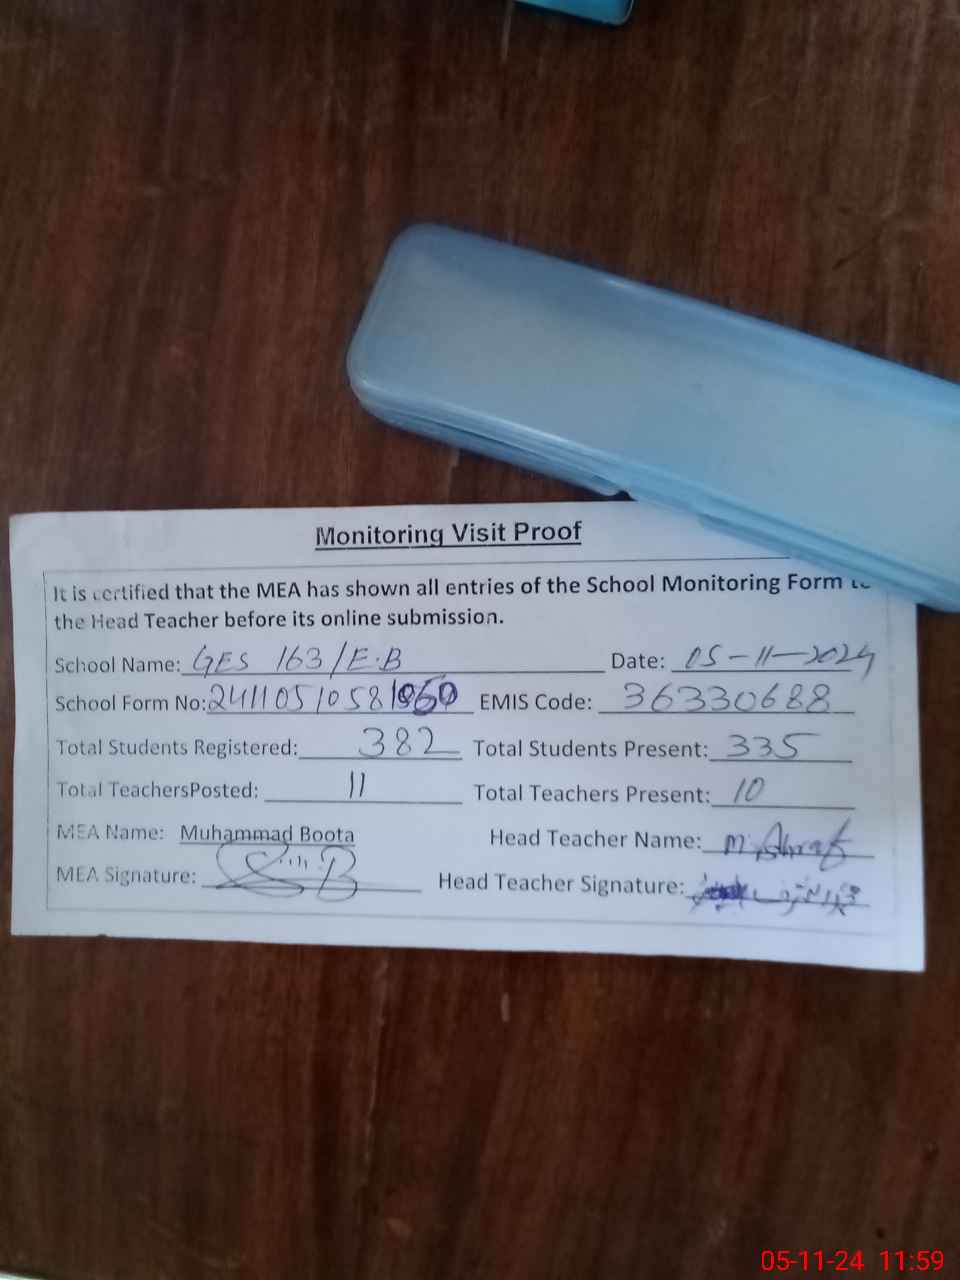 Monitoring Visit Proof
It is certified that the MEA has shown all entries of the School Monitoring Form to
the Head Teacher before its online submission.
School Name: GES 163/E.B Date: 05-11-2024
School Form No: EMIS Code: 36330688
Total Students Registered: 382 Total Students Present: 335
Total TeachersPosted: 11 Total Teachers Present: 10
MEA Name: Muhammad Boota Head Teacher Name: M. Ashraf
MEA Signature: Head Teacher Signature:
05-11-24 11:59